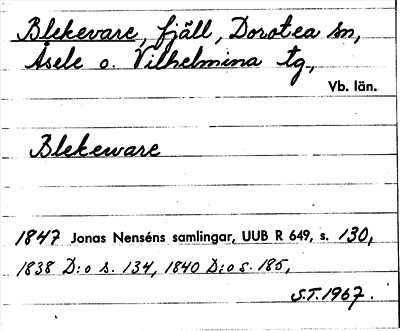 Blekevare, fjäll, Dorotea sn,
Åsele o. Vilhelmina tg,
Vb. län.
Blekevare
1847 Jonas Nenséns samlingar, UUB R 649, s. 130,
1838 D:o s. 134, 1840 D:o s. 185,
S.T. 1967.